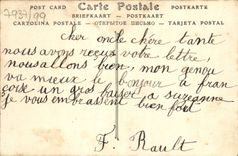 7937/99
POST CARD Carte Postale POSTKARTE
BRIEFKAART — POSTKAART
CARTOLINA POSTALE — — TARJETA POSTAL
cher oncle chère tante
nous avons reçus votre lettre,
nous allons bien, mon genou
va mieux le bonjour a fran
çoise un gros baiser a suzeanne
je vous embrassent bien fort
F. Rault